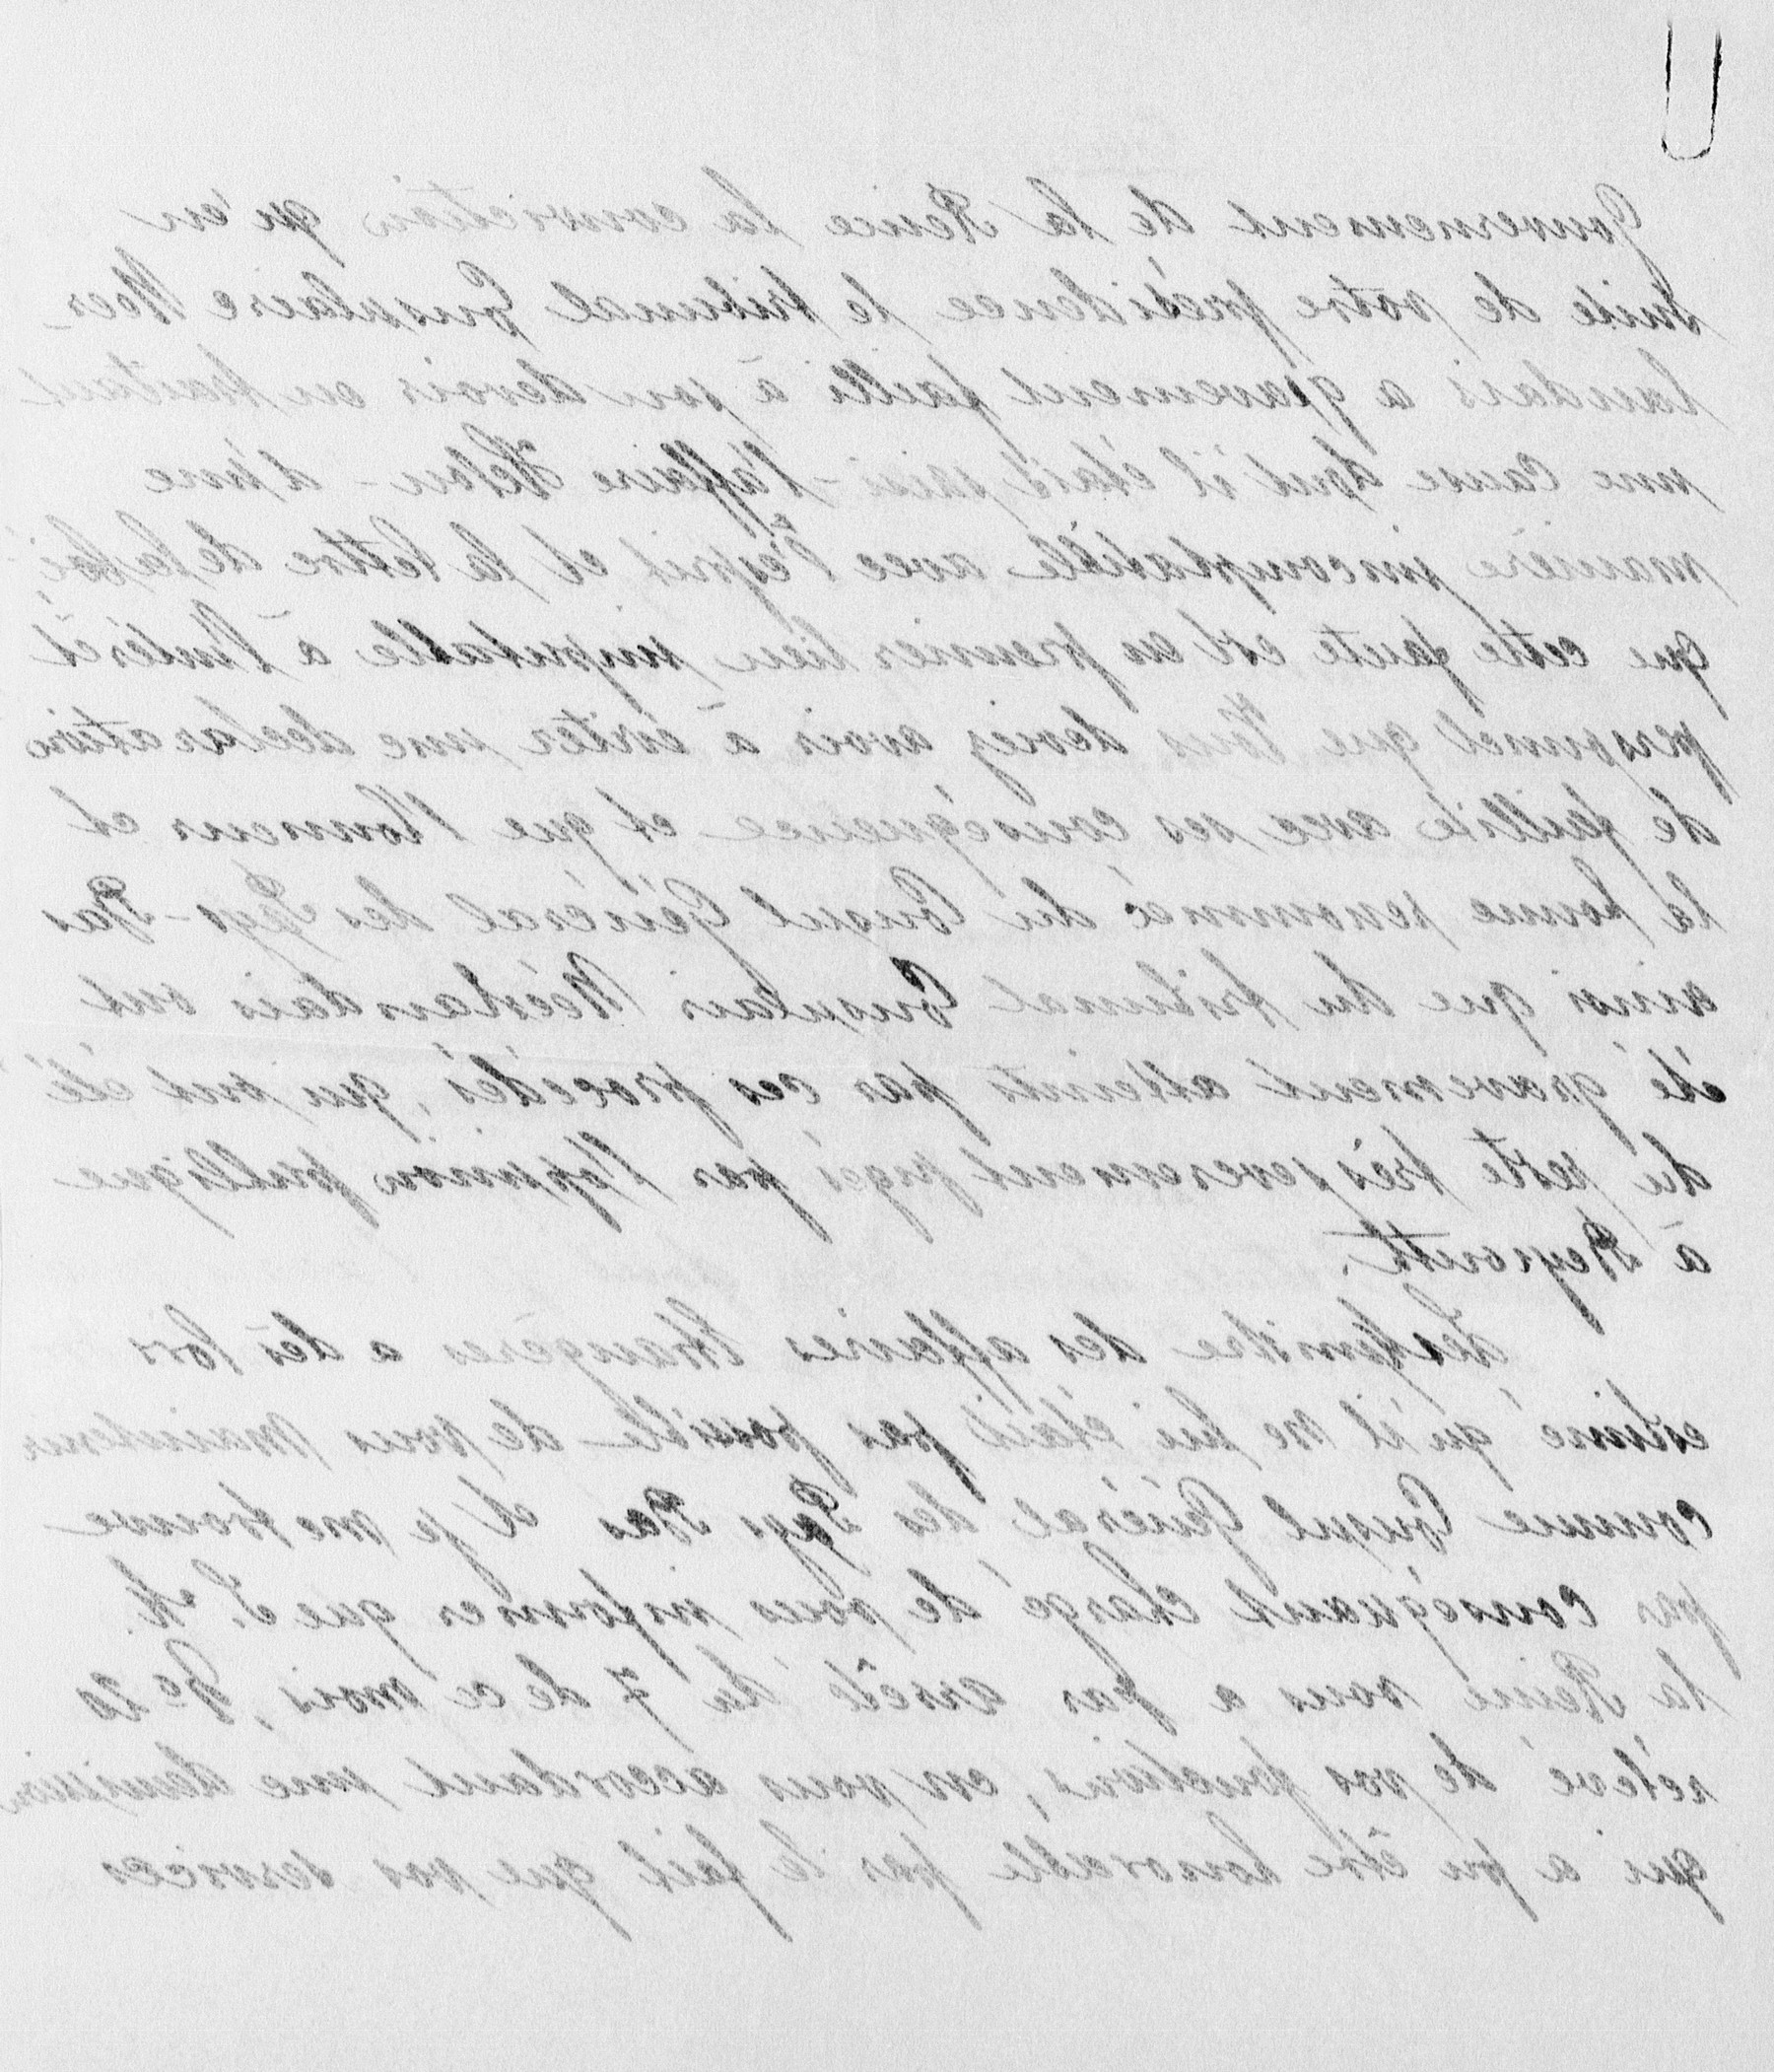 Gouvernement de la Reine la conviction qu'en
suite de votre présidence le tribunal Consulaire Néer-
landais a gravement failli à son devoir en traitant
une cause dont il était saisi - l'affaire - d'une
manière incompatible avec l'esprit et la lettre de la loi;
que cette faute est en premier lieu imputable à l'intérêt
personnel que Vous deviez avoir à éviter une declaration
de faillite avec ses conséquence et que l'honneur et
la bonne renommée du Consul Général des Pays-Bas
ainsi que du tribunal Consulair Néerlandais ont
été gravement atteints par ces procédés, qui ont été
du reste très severement jugés par l'opinion publique
à Beyrouth.
des affaires Etrangères a dès lors
estimé qu'il ne lui était pas possible de vous maintenir
comme Consul Général des Pays Bas et je me trouve
par conséquant chargé de vous informer que S. M.
la Reine vous a par arrêté du 7 de ce mois, Nº 20
relevé de vos fonctions, en vous accordant une demission
qui a pu être honorable par le fait que vos services